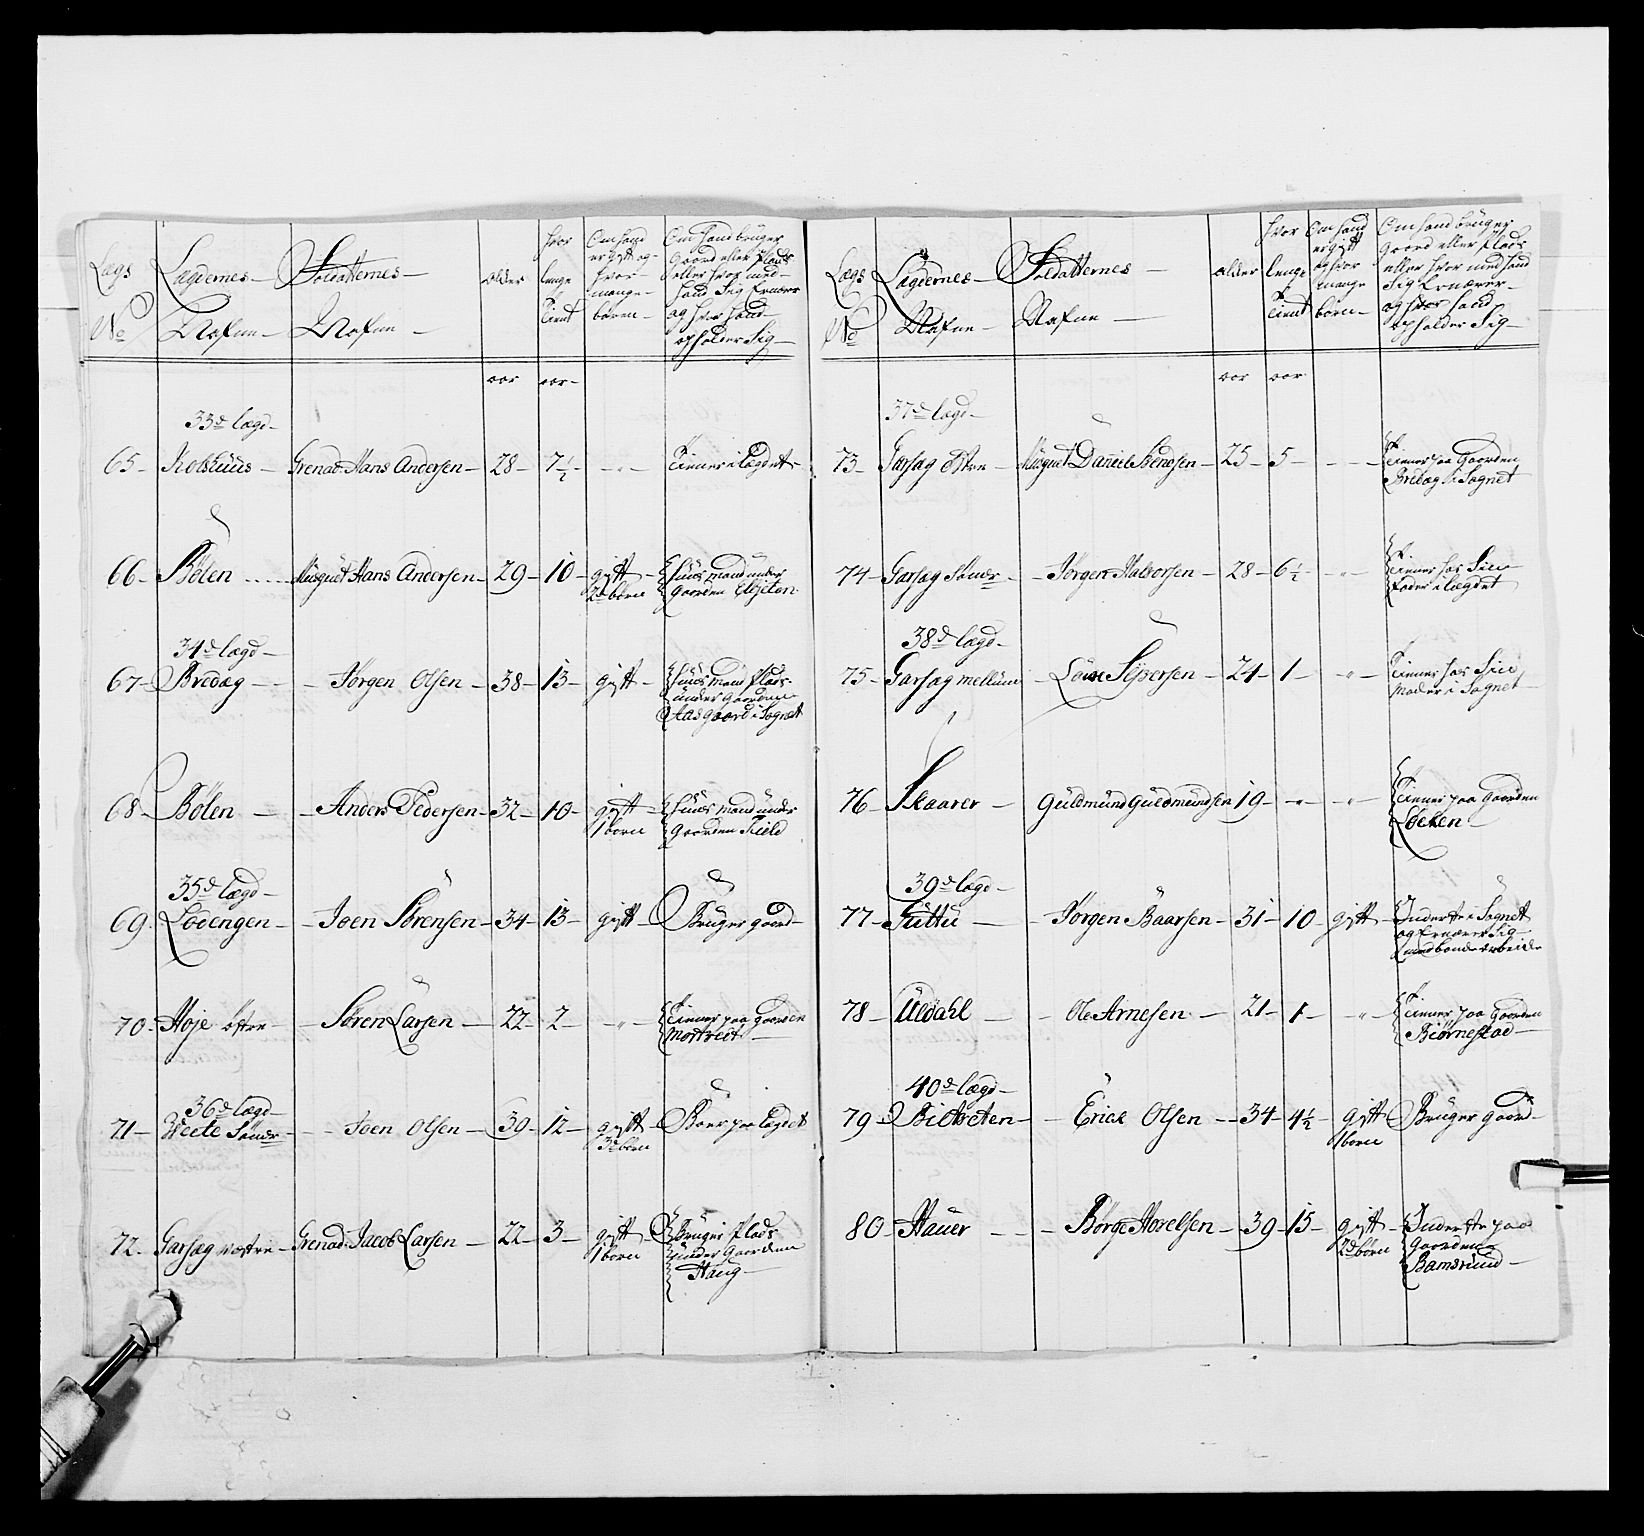 Lægs
No
Lægdernes Nafne
Soldatternes Nafne
alder
hvor lenge Tient
Om hand er gift og hvor mange børen
Om hand bruger Gaard eller Plads eller hvor med hand Sig Ernærer og hvor hand opholder Sig
aar aar
33de lægd
65 Kolshuus Grenad Hans Andersen 28 7½ - " - Tiener i Lægdet
66 Bølen Musquet Hans Andersen 29 10 gift 2de børn Huusmand under Gaarden
34de lægd
67 Bredag Jørgen Olsen 38 13 gift Huusmand Plads under Gaarden Aasgaard i Sognet
68 Bølen Anders Pedersen 32 10 gift 1 born Huusmand under Gaarden Kield
35de lægd
69 Lodengen Joen Sørensen 34 13 gift Bruger gaard
70 Høje østre Søren Larsen 22 2 - " - Tiener paa Gaarden
36de lægd
71 Weete Søndr Joen Olsen 30 12 gift 3de børn Boer paa Lægdet
72 Garsæg vestre Grenad Jacob Larsen 22 3 gift 1 born Bruger Plads under Gaarden Haug
Lægs
No
Lægdernes Nafne
Soldatternes Nafne
alder
hvor lenge Tient
Om hand er gift og hvor mange børen
Om hand bruger Gaard eller Plads eller hvor med hand Sig Ernærer og hvor hand opholder Sig
aar aar
37de lægd
73 Garsæg østre Musquet Daniel Svendsen 25 5 - Tiener paa Gaarden Bredæg i Sognet
74 Garsæg Sønder Jørgen Halvorsen 28 6½ - " - Tiener hos Sin Fader i Lægdet
38de lægd
75 Garsæg mellum Syversen 24 1 - " - Tiener hos Sin Moder i Sognet
76 Skaarer Guldmund Guldmundsen 19 - " - - " - Tiener paa Gaarden Løcken
39de lægd
77 Tuttu Jørgen Baarsen 31 10 gift Inderste i Sognet og Ernærer Sig med bonde arbeide
78 Uldahl Ole Arnesen 21 1 - " - Tiener paa Gaarden Biørnestad
40de lægd
79 Erick Olsen 34 4½ gift 1 born Bruger gaard
80 Hauer Børge Horelsen 39 15 gift 2de børn Inderste paa Gaarden Bamsrund